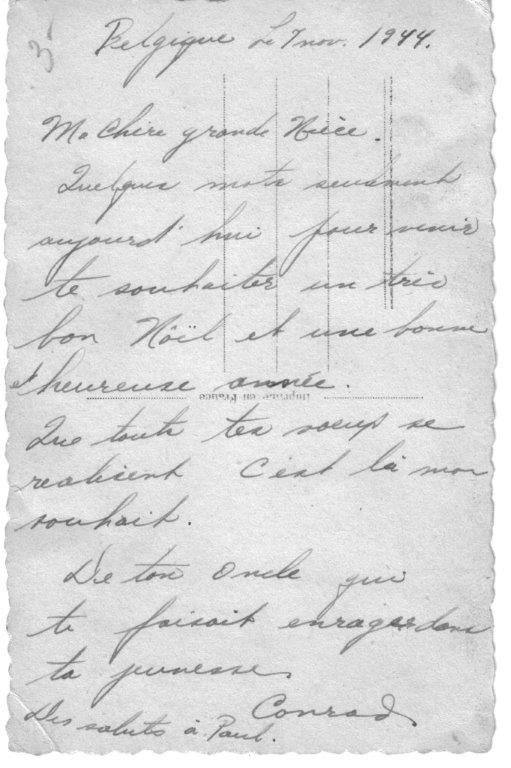 3
Belgique Le 7 nov. 1944.
Ma Chère grande Nièce.
Quelques mots seulement
aujourd'hui pour venir
te souhaiter un très
bon Nöil et une bonne
et heureuse année.
Imprimé en France
Que touts tes voeux se
realisent C'est là mon
souhait.
De ton Oncle qui
te faisait enrager dans
ta jeunesse
Conrad
Des saluts à Paul.